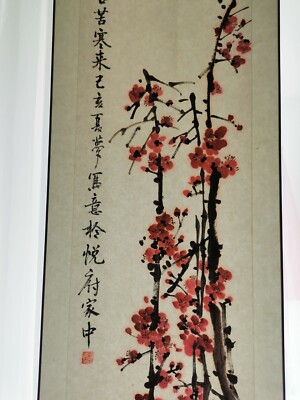 苦寒来己亥夏梦写意于悦府家中